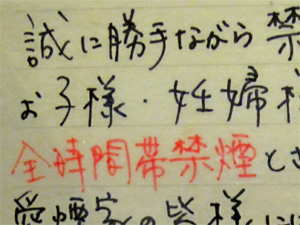 誠に勝手ながら 禁
お子様・妊婦様
全時間帯禁煙とさ
愛煙家の皆様に